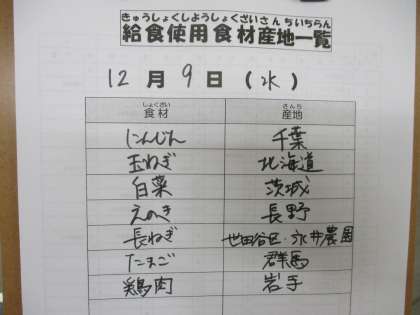 きゅうしょくしようしょくざいさんちいちらん
給食使用食材産地一覧
12月9日(水)
しょくざい さんち
食材 産地
にんじん 千葉
玉ねぎ 北海道
白菜 茨城
えのき 長野
長ねぎ 世田谷区・永井農園
たまご 群馬
鶏肉 岩手